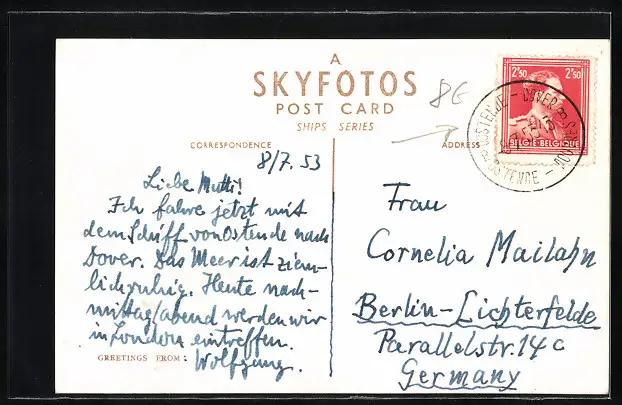 A
SKYFOTOS
POST CARD
SHIPS SERIES
8G
CORRESPONDENCE
ADDRESS
2F50 2F50
BELGIE-BELGIQUE
OSTENDE – DOVER
OOSTENDE –
8/7. 53
Liebe Mutti!
Ich fahre jetzt mit
dem Schiff von Ostende nach
Dover. Das Meer ist ziem-
lich ruhig. Heute nach-
mittag/abend werden wir
in London eintreffen.
GREETINGS FROM: Wolfgang.
Frau
Cornelia Mailahn
Berlin-Lichterfelde
Parallelstr. 14c
Germany